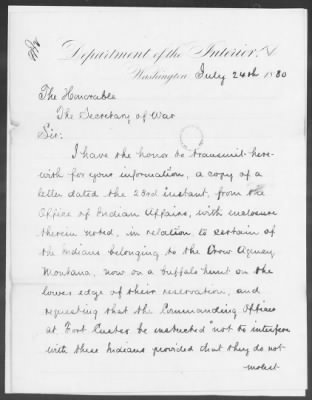 Department of the Interior,
Washington July 24th 1880
The Honorable
The Secretary of War
Sir:
I have the honor to transmit here-
with for your information, a copy of a
letter dated the 23rd instant, from the
Office of Indian Affairs, with inclosure
therein noted, in relation to certain of
the Indians belonging to the Crow Agency
Montana, now on a buffalo hunt on the
lower edge of their reservation, and
requesting that the Commanding Officer
at Fort Custer be instructed "not to interfere
with these Indians provided that they do not
molest